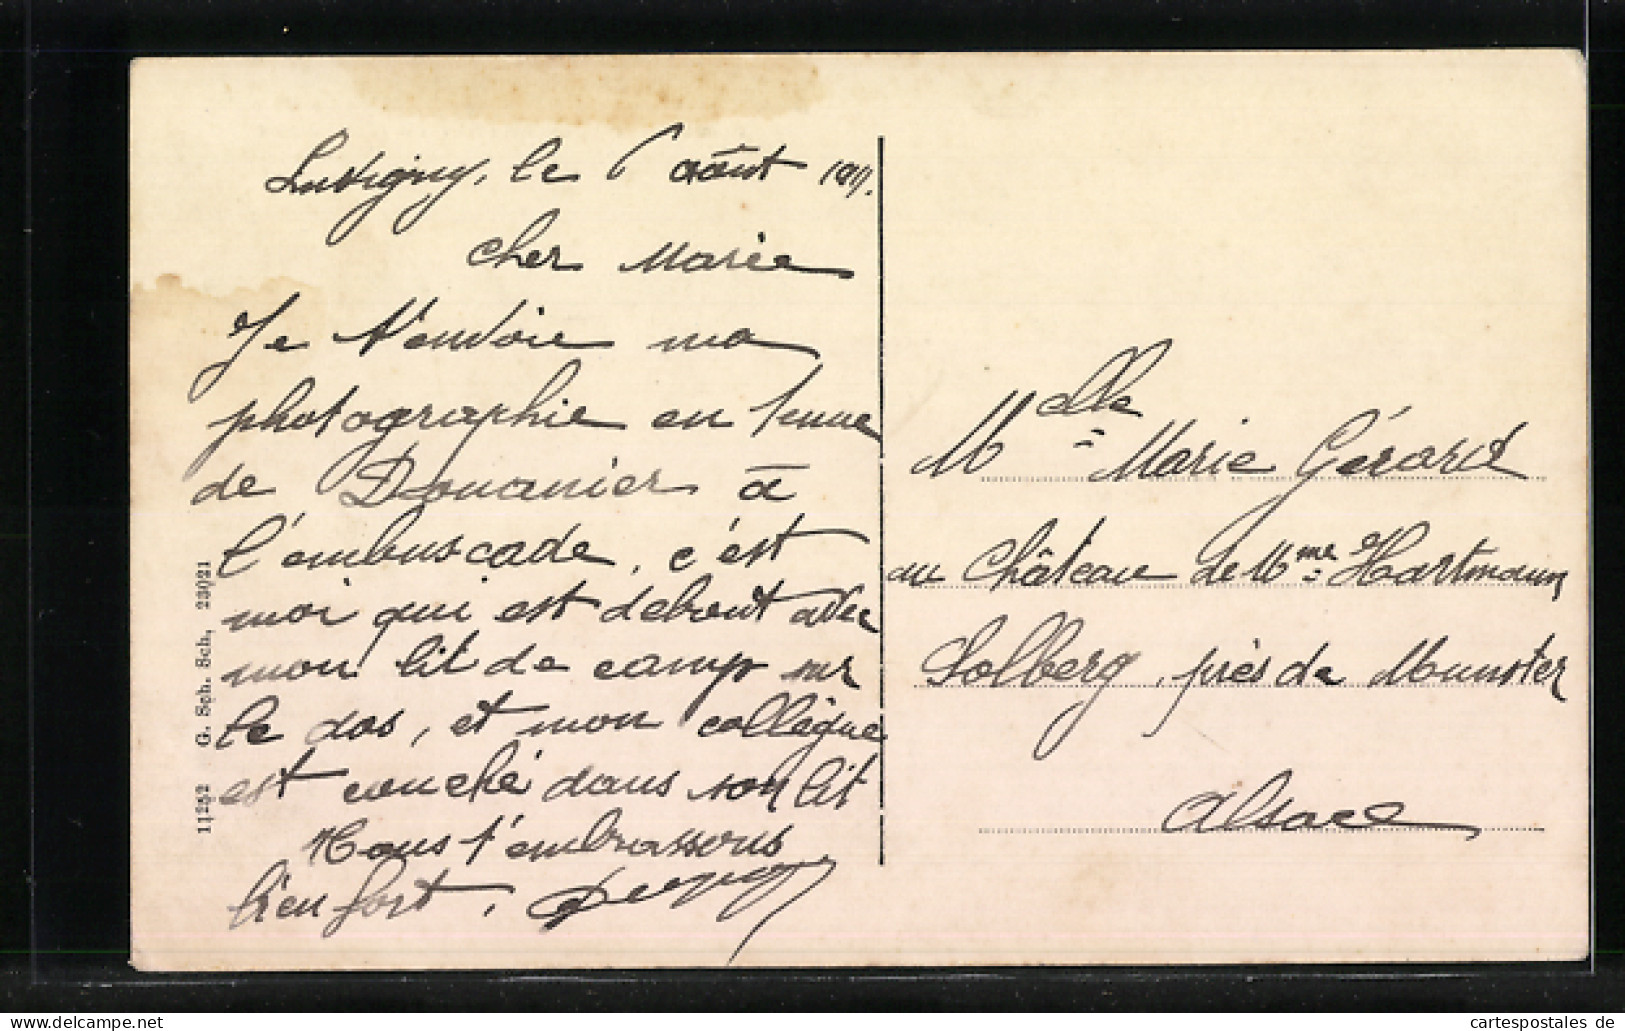 Luvigny, le 6 août 1911.
cher Marie
Je t'envoie ma
photographie en tenue
de Douanier à
l'embuscade, c'est
moi qui est debout avec
mon lit de camp sur
le dos, et mon collègue
est couché dans son lit
Nous t'embrassons
bien fort,
Melle Marie Gérard
au Château de Mme Hartmann
Solberg, près de Munster
Alsace
11252 G. Sch. Sch, 23021
Luna (c) delcampe.net
cartespostales de